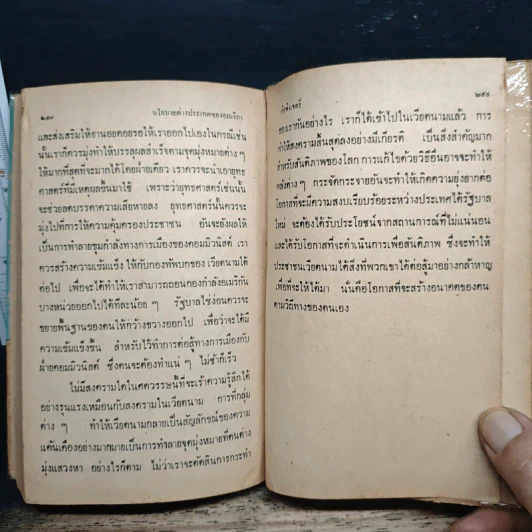 ๒๕๘ นโยบายต่างประเทศของอเมริกา
และส่งเสริมให้ฮานอยคอยรอให้เราออกไปเองในกรณีเช่น
นั้นเราก็ควรมุ่งทำให้บรรลุผลสำเร็จตามจุดมุ่งหมายต่าง ๆ
ให้มากที่สุดที่จะมากได้โดยฝ่ายเดียว เราควรจะนำเอายุทธ
ศาสตร์ที่มีเหตุผลขึ้นมาใช้ เพราะว่ายุทธศาสตร์เช่นนั้น
จะช่วยลดบรรดาความเสียหายลง ยุทธศาสตร์นั้นควรจะ
มุ่งไปที่การให้ความคุ้มครองประชาชน อันจะยังผลให้
เป็นการทำลายขุมกำลังทางการเมืองของคอมมิวนิสต์ เรา
ควรสร้างความเข้มแข็ง ให้กับกองทัพบกของ เวียดนามใต้
ต่อไป เพื่อจะได้ทำให้เราสามารถถอนกองกำลังอเมริกัน
บางหน่วยออกไปได้ทีละน้อย ๆ รัฐบาลไซ่ง่อนควรจะ
ขยายพื้นฐานของตนให้กว้างขวางออกไป เพื่อว่าจะได้มี
ความเข้มแข็งขึ้น สำหรับไว้ทำการต่อสู้ทางการเมืองกับ
ฝ่ายคอมมิวนิสต์ ซึ่งตนจะต้องทำแน่ ๆ ไม่ช้าก็เร็ว
ไม่มีสงครามใดในศตวรรษนี้ที่จะเร้าความรู้สึกได้
อย่างรุนแรงเหมือนกับสงครามในเวียดนาม การที่กลุ่ม
ต่าง ๆ ทำให้เวียดนามกลายเป็นสัญลักษณ์ของความ
แค้นเคืองอย่างมากมายเป็นการทำลายจุดมุ่งหมายที่ตนต่าง
มุ่งแสวงหา อย่างไรก็ตาม ไม่ว่าเราจะตัดสินการกระทำ
คิสซิงเจอร์ ๒๕๙
ของเรากันอย่างไร เราก็ได้เข้าไปในเวียดนามแล้ว การ
ทำให้สงครามสิ้นสุดลงอย่างมีเกียรติ เป็นสิ่งสำคัญมาก
สำหรับสันติภาพของโลก การแก้ไขด้วยวิธีอื่นอาจจะทำให้
พลังต่าง ๆ กระจัดกระจายอันจะทำให้เกิดความยุ่งยากต่อ
โอกาสที่จะมีความสงบเรียบร้อยระหว่างประเทศได้รัฐบาล
ใหม่ จะต้องได้รับประโยชน์จากสถานการณ์ที่ไม่แน่นอน
และได้รับโอกาสที่จะดำเนินการเพื่อสันติภาพ ซึ่งจะทำให้
ประชาชนเวียดนามได้สิ่งที่พวกเขาได้ต่อสู้มาอย่างกล้าหาญ
เพื่อที่จะให้ได้มา นั่นคือโอกาสที่จะสร้างอนาคตของตน
ตามวิถีทางของตนเอง